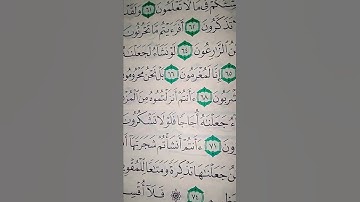 ـشِئَكُمْ فِى مَا لَا تَعْلَمُونَ ٦١ وَلَقَدْ
تَذَكَّرُونَ ٦٢ أَفَرَءَيْتُم مَّا تَحْرُثُونَ
نُ ٱلزَّٰرِعُونَ ٦٤ لَوْ نَشَآءُ لَجَعَلْنَـ
٦٥ إِنَّا لَمُغْرَمُونَ ٦٦ بَلْ نَحْنُ مَحْرُومُو
ـشْرَبُونَ ٦٨ ءَأَنتُمْ أَنزَلْتُمُوهُ مِنَ ٱلْمُزْ
ءُ جَعَلْنَٰهُ أُجَاجًا فَلَوْلَا تَشْكُرُونَ
ـورُونَ ٧١ ءَأَنتُمْ أَنشَأْتُمْ شَجَرَتَهَآ أَمْ
ـنُ جَعَلْنَٰهَا تَذْكِرَةً وَمَتَٰعًا لِّلْمُقْوِ
٧٤ ۞ فَلَآ أُقْسِـ